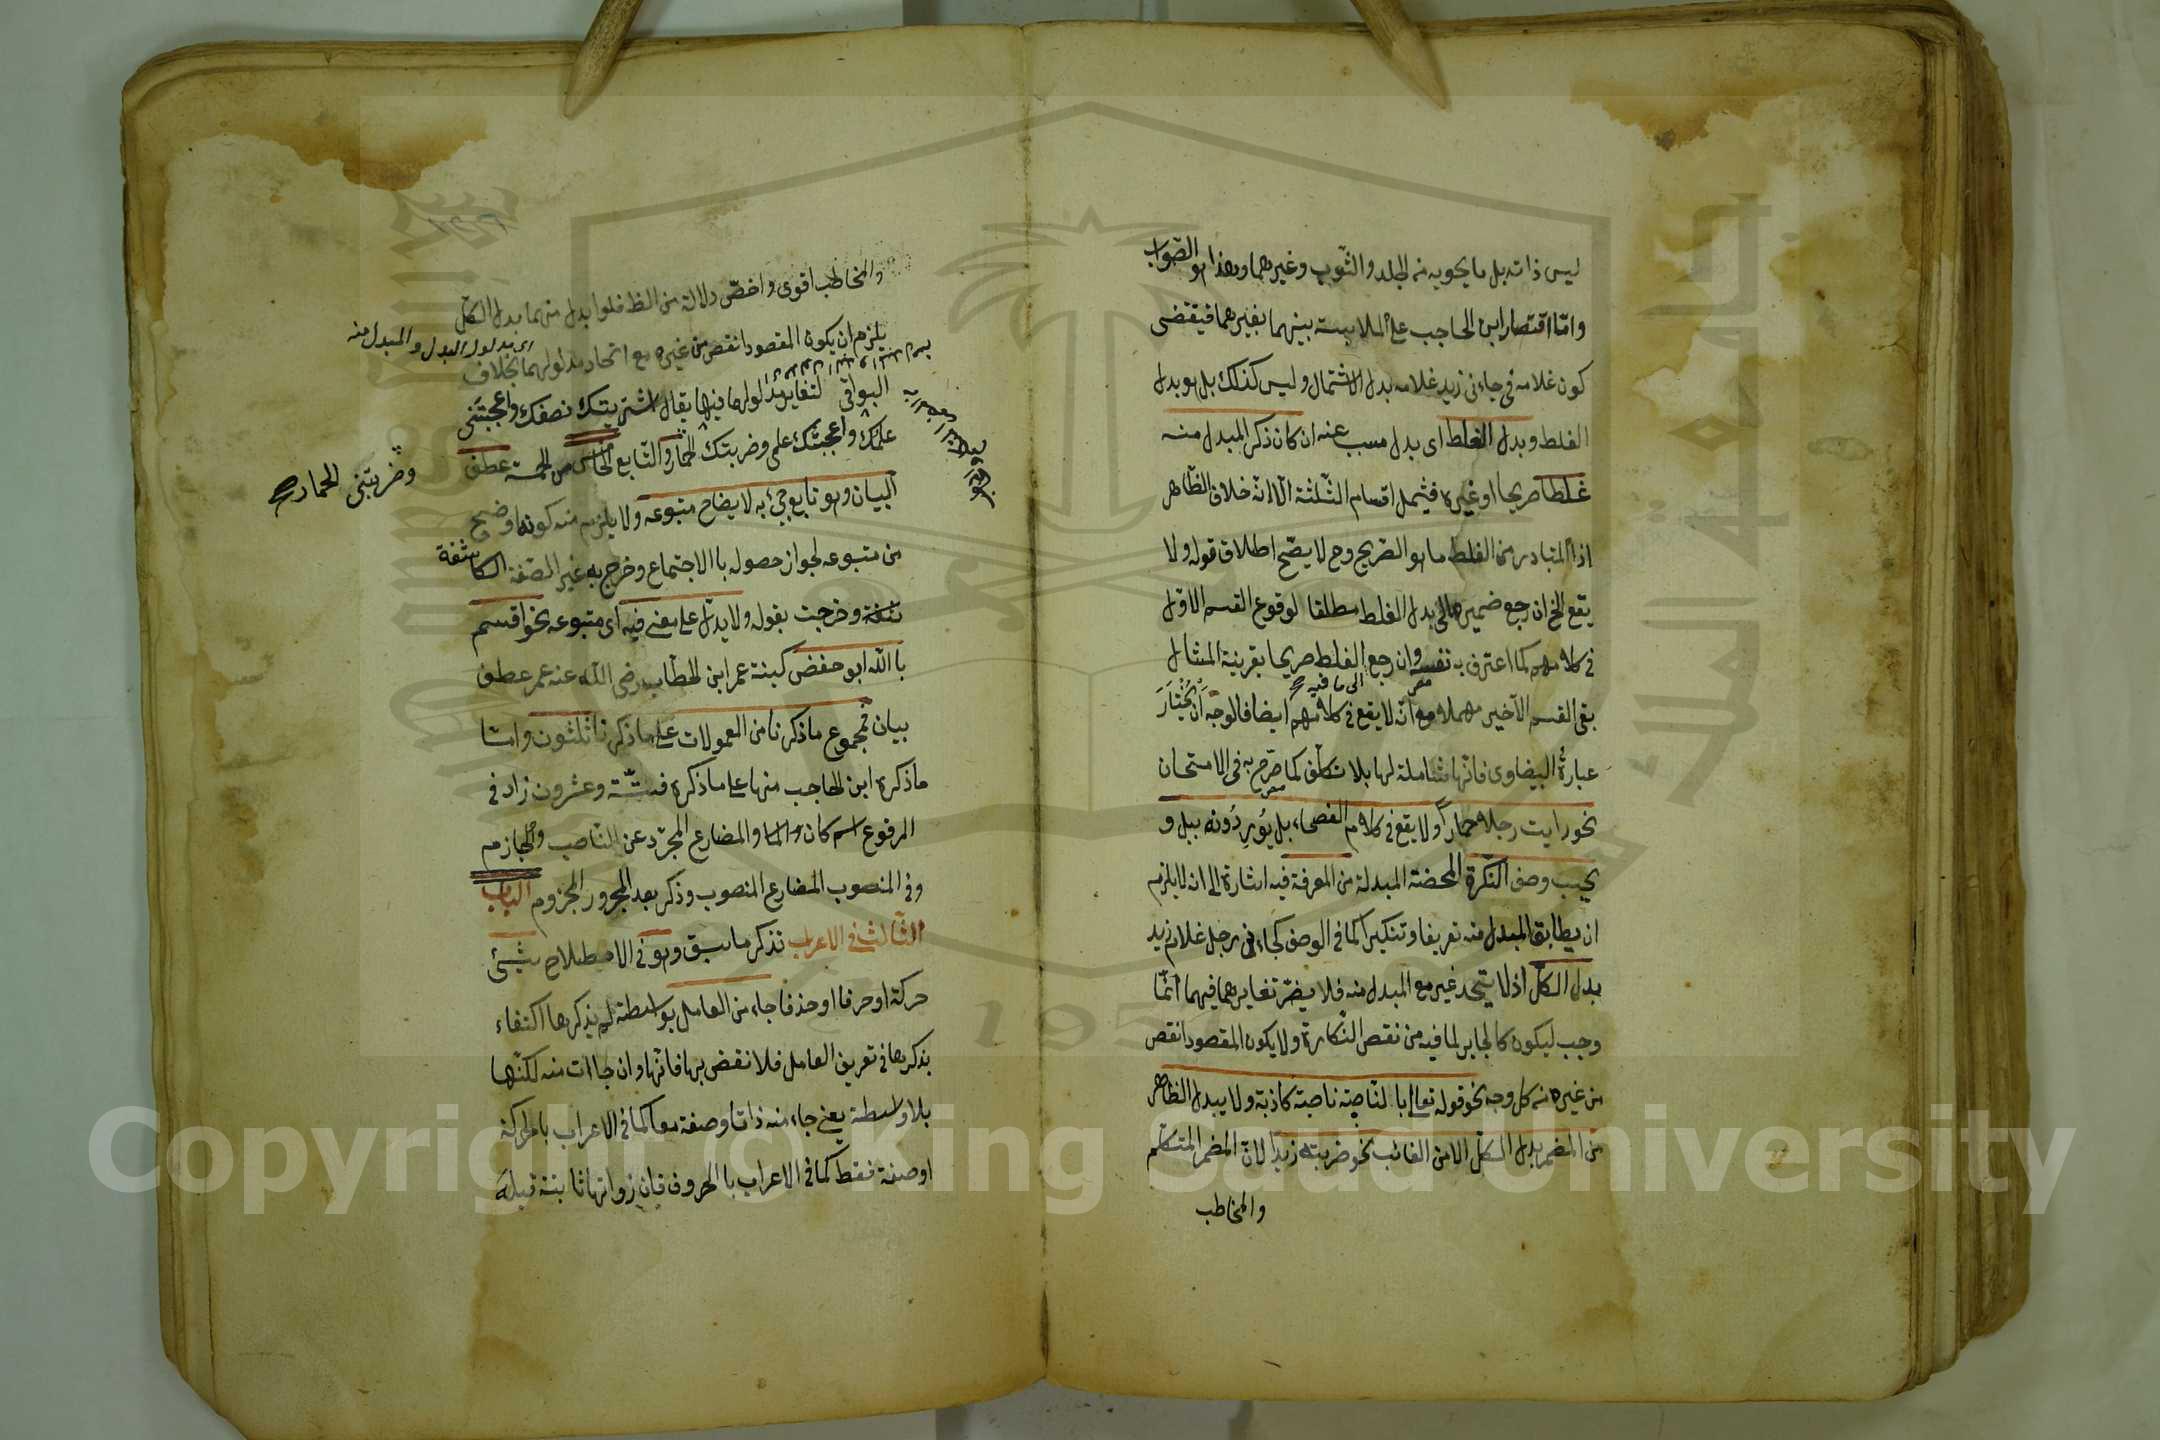 ليس ذاته بل ما يحويه من الجلد والثوب وغيرهما وهذا هو الصواب
واما اقتصار ابن الحاجب على الملابسة بينهما بغيرهما فيقتضى
كون غلامه فى جاءنى زيد غلامه بدل الاشتمال وليس كذلك بل هو بدل
الغلط وبدل الغلط اى بدل مسبب عنه ان كان ذكر المبدل منه
غلطا صريحا اوغيره فيشمل اقسام الثلثة الا انه خلاف الظاهر
اذ المتبادر من الغلط ما هو الصريح وح لا يصح اطلاق قوله ولا
يقع الخ ان رجع ضميره الى بدل الغلط مطلقا لوقوع القسم الاول
فى كلامهم كما اعترف به نفسه وان رجع الى ما فيه الغلط صريحا بقرينة المثال
بقى القسم الآخير مهملا مع انه لا يقع فى كلامهم ايضا فالوجه ان يختار
عبارة البيضاوى فانها شاملة لها بلا تكلف كما صرح به فى الامتحان
نحو رايت رجلا حمارا ولا يقع فى كلام الفصحاء بل يوردونه ببل و
يجب وصف النكرة المحضة المبدلة من المعرفة فيه اشارة الى انه لا يلزم
ان يطابق المبدل منه تعريفا وتنكيرا كما فى الوصف كجاءنى رجل غلام زيد
بدل الكل اذ لا يتحد غيره مع المبدل منه فلا يضر تغايرهما فيهما انما
وجب ليكون كالجابر لما فيه من نقص النكارة ولا يكون المقصود انقص
من غيره من كل وجه نحو قوله تعالى بالناصية ناصية كاذبة ولا يبدل الظاهر
من المضمر بدل الكل الا من الغائب نحو ضربته زيدا لان المضمر المتكلم
والمخاطب
والمخاطب اقوى واخص دلالة من الظ فلو ابدل منهما بدل الكل
يلزم ان يكون المقصود انقص من غيره مع اتحاد مدلولهما بخلاف
اى مدلول البدل والمبدل منه
البواقى لتغاير مدلولهما فيها يقال اشتريتك نصفك واعجبتنى
علمك واعجبتك علمى وضربتك الحمار والتابع الخامس من الخمسة عطف
وضربتنى الحمار صح
البيان وهو تابع جئ به لايضاح متبوعه ولا يلزم منه كونه اوضح
من متبوعه لجواز حصوله باالاجتماع وخرج به غير الصفة الكاشفة
وخرجت بقوله ولا يدل على معنى فيه اى متبوعه نحو اقسم
باالله ابو حفض كنية عمر ابن الخطاب رضى الله عنه عمر عطف
بيان فمجموع ما ذكرنا من المعمولات على ما ذكرنا ثلثون واما
ما ذكره ابن الحاجب منها على ما ذكره فستة وعشرون زاد فى
المرفوع اسم كان والمضارع المجرد عن الناصب والجازم
وفى المنصوب المضارع المنصوب وذكر بعد المجرور المجزوم الباب
الثالث فى الاعراب نذكر ما سبق وهو فى الاصطلاح شيئ
حركة او حرفا او حذفا جاء من العامل بواسطة لم يذكرها اكتفاء
بذكرها فى تعريف العامل فلا نقض بها فانها وان جاات منه لكنها
بلا واسطة يعنى جاء منه ذاتا وصفة معا كما فى الاعراب بالحركة
او صفة فقط كما فى الاعراب بالحروف فان ذواتها ثابتة قبله
Copyright © King Saud University